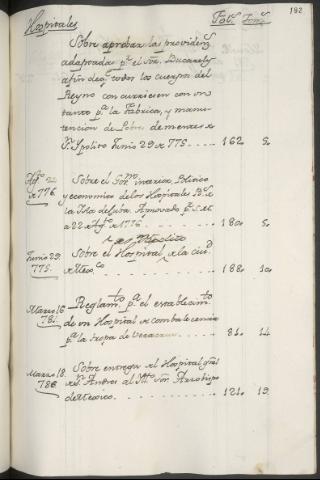 Hospitales Fol.s Tom.s 192
Sobre aprobar las providen.s
adaptadas p.r el Sor. Bucarely
afin de q.e todos los cuerpos del
Reyno concurriesen con un
tanto p.a la Fabrica, y manu-
tencion de Pobres dementes de
S.n Ipolito Junio 29 de 775 .... 162 5.
Ag.to 22 de 776. Sobre el
y economico de los Hospitales
la Isla de Cuba. Aprovado p.r S.M.
a 22 de Ag.to de 1776 .... 180. 5.
Junio 29. 775. Sobre el Hospital de la ciud.d
de Mex.co 188. 10.
Marzo 16 781. Reglam.to p.a el establecim.to
de un Hospital de combalecencia
p.a la tropa de Veracruz .... 81. 14
Marzo 18. 786 Sobre entrega del Hospital gral
de S.n Andres al Sor. Arzobispo
de Mexico .... 121. 19.